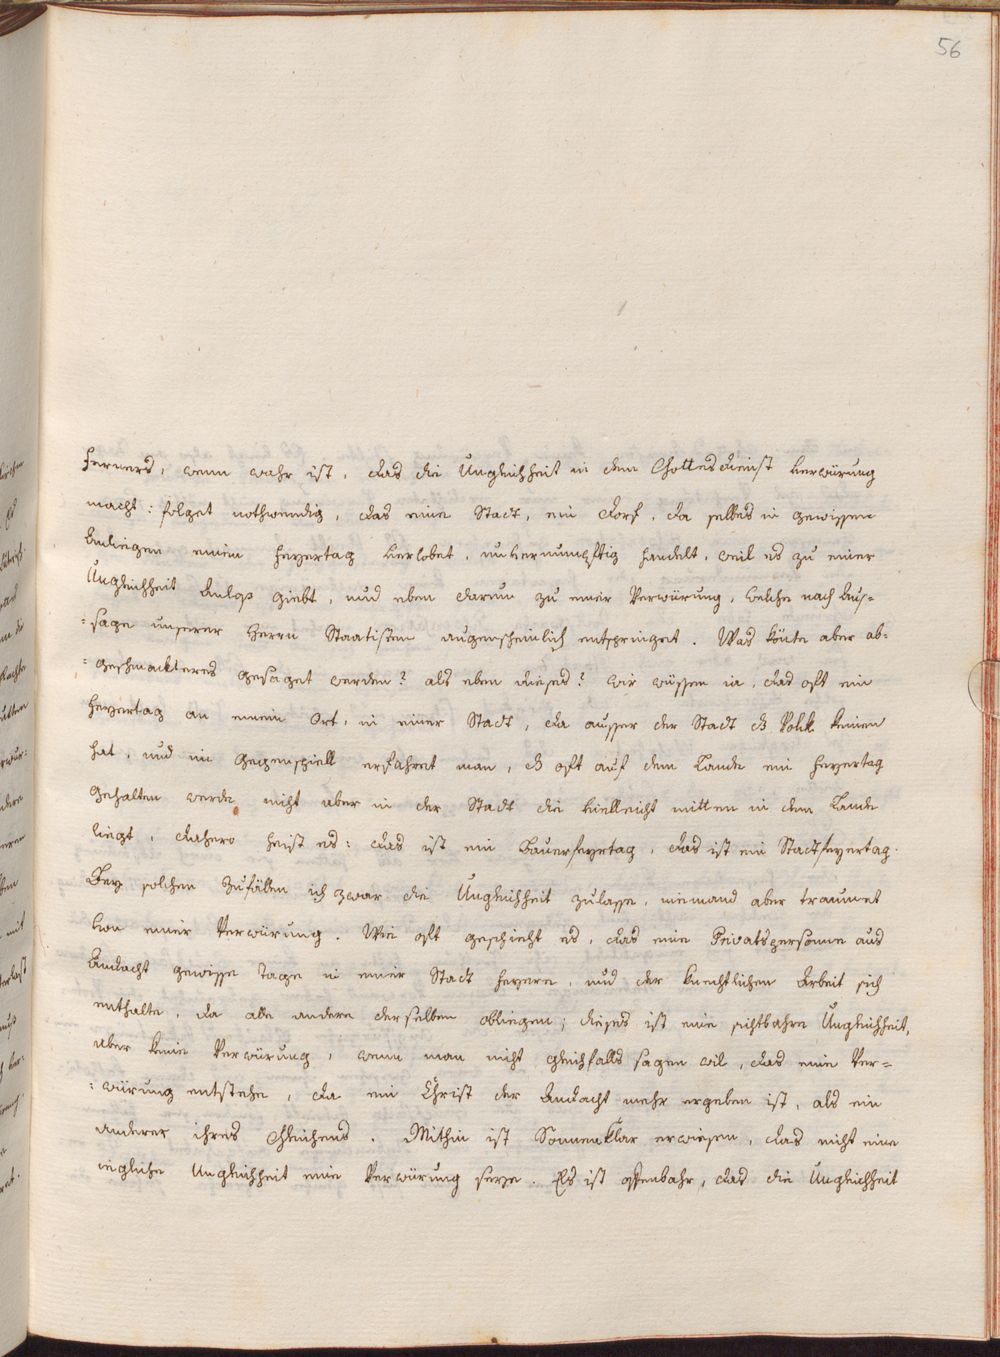 56
Ferners, wenn wahr ist, das die Ungleichheit in dem Gottesdienst Verwürung
macht: folget nothwendig, das eine Stadt, ein Dorf, da selbes in gewissen
Anliegen einen Feyertag verlobet, unvernumpftig handelt, weil es zu einer
Ungleichheit Anlaß giebt, und eben darum zu einer Verwürung, welche nach Aus=
=sage unserer Herrn Staatisten augenscheinlich entspringet. Was könte aber ab=
=geschmackteres gesaget werden? als eben dieses? wir wüssen ia, das oft ein
Feyertag an einem Ort, in einer Stadt, da ausser der Stadt dß Volk keinen
hat, und im gegenspiell erfahret man, dß oft auf dem Lande ein Feyertag
gehalten werde nicht aber in der Stadt die vielleicht mitten in dem Lande
liegt, dahero heist es: das ist ein Bauerfeyrtag, das ist ein Stadtfeyertag.
Bey solchen Zufällen ich zwar die Ungleichheit zulasse, niemand aber traumet
von einer Verwürung. Wie oft geschieht es, das eine Privatspersonne aus
Andacht gewisse Tage in einer Stadt feyere, und der knechtlichen Arbeit sich
enthalte, da alle andere derselben obliegen; dieses ist eine sichtbahre Ungleichheit,
aber keine Verwürung, wenn man nicht gleichfalls sagen wil, das eine Ver=
=würung entstehe, da ein Christ der Andacht mehr ergeben ist, als ein
anderer ihres Gleichens. Mithin ist Sonnenklar erwiesen, das nicht eine
iegliche Ungleichheit eine Verwürung seye. Es ist offenbahr, das die Ungleichheit